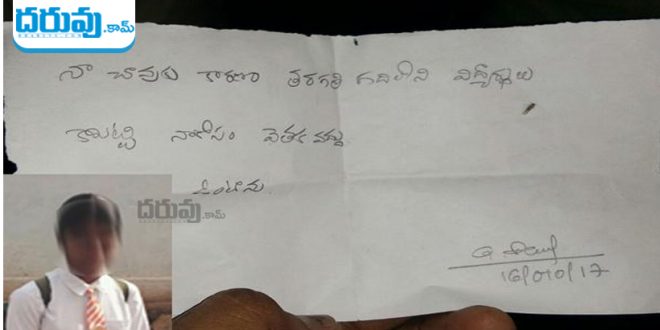 దరువు.కామ్
నా చావుకు కారణం తరగతి గదిలోని విద్యార్థులు
కాబట్టి నాకోసం వెతక వద్దు
ఉంటాను.
దరువు.కామ్
16/010/17